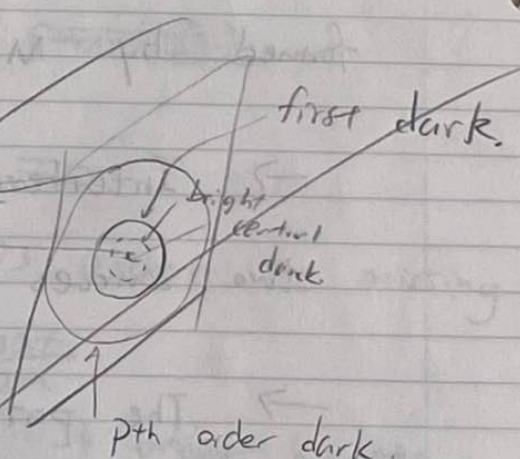 first dark.
bright
central
dark
pth order dark.